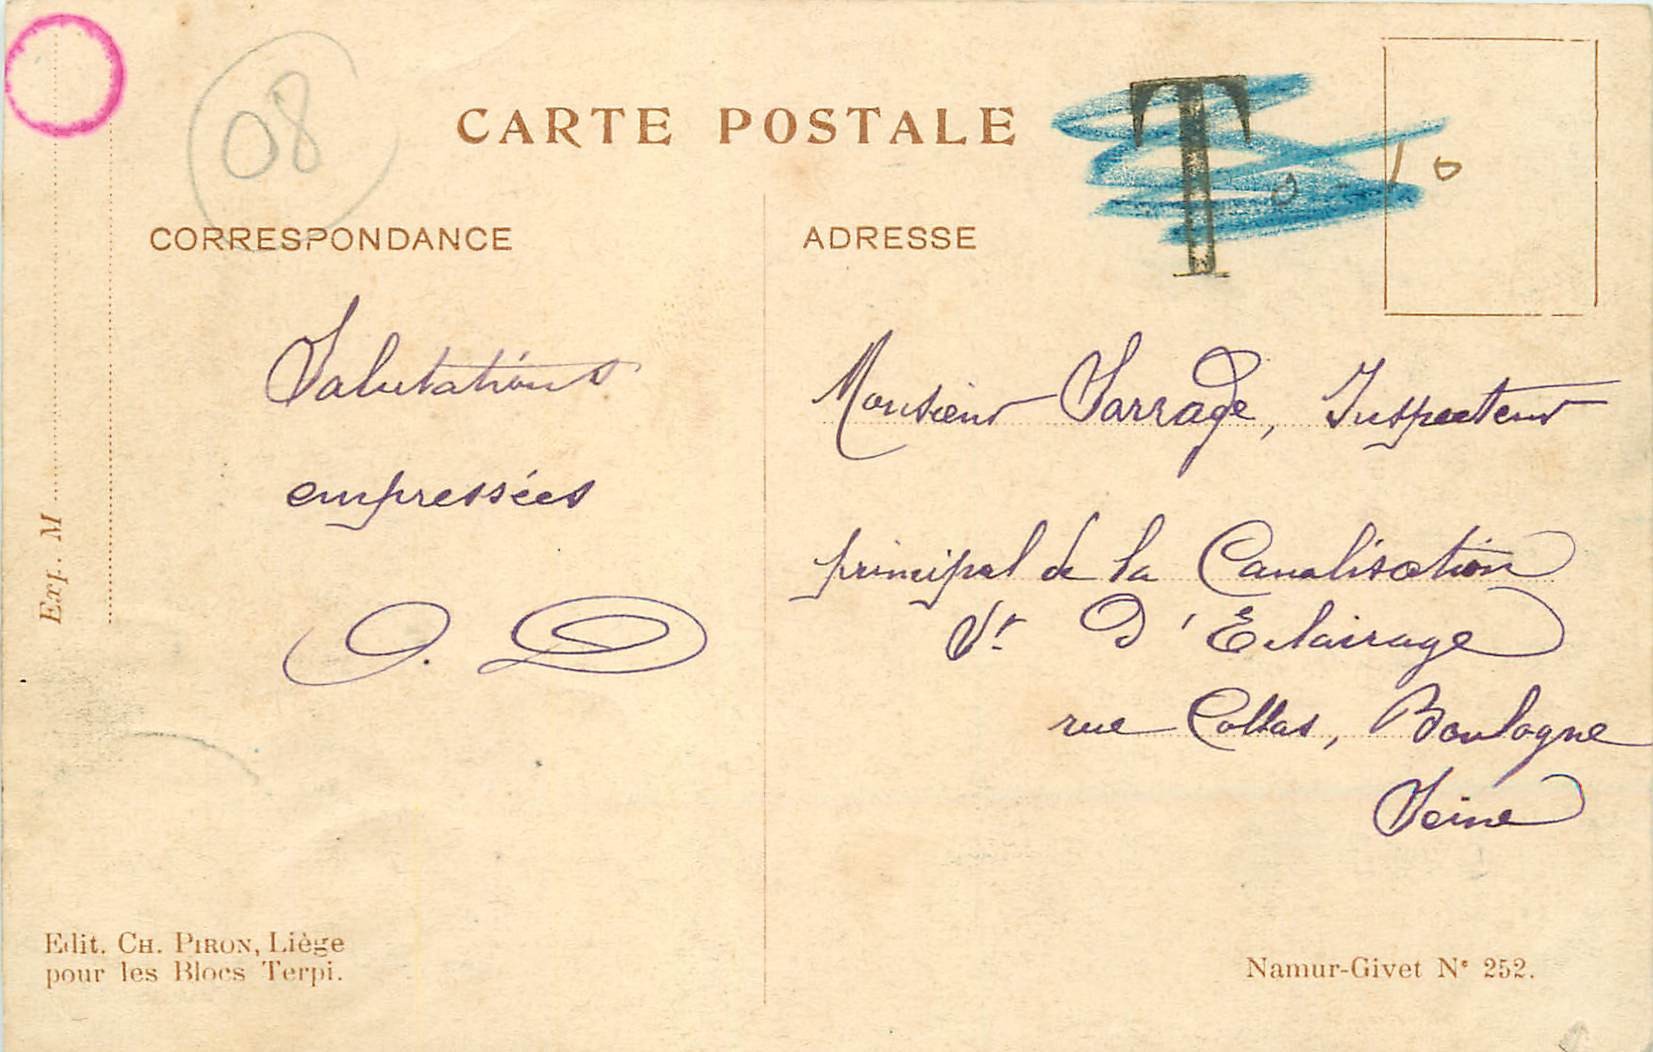 08
CARTE POSTALE
T
CORRESPONDANCE
ADRESSE
Salutations
empressées
Monsieur Sarrade, Inspecteur
principal de la Canalisation
Sr. D'Eclairage
rue Collas, Boulogne
Seine
Exp. M
Edit. CH. PIRON, Liège
pour les Blocs Terpi.
Namur-Givet N° 252.